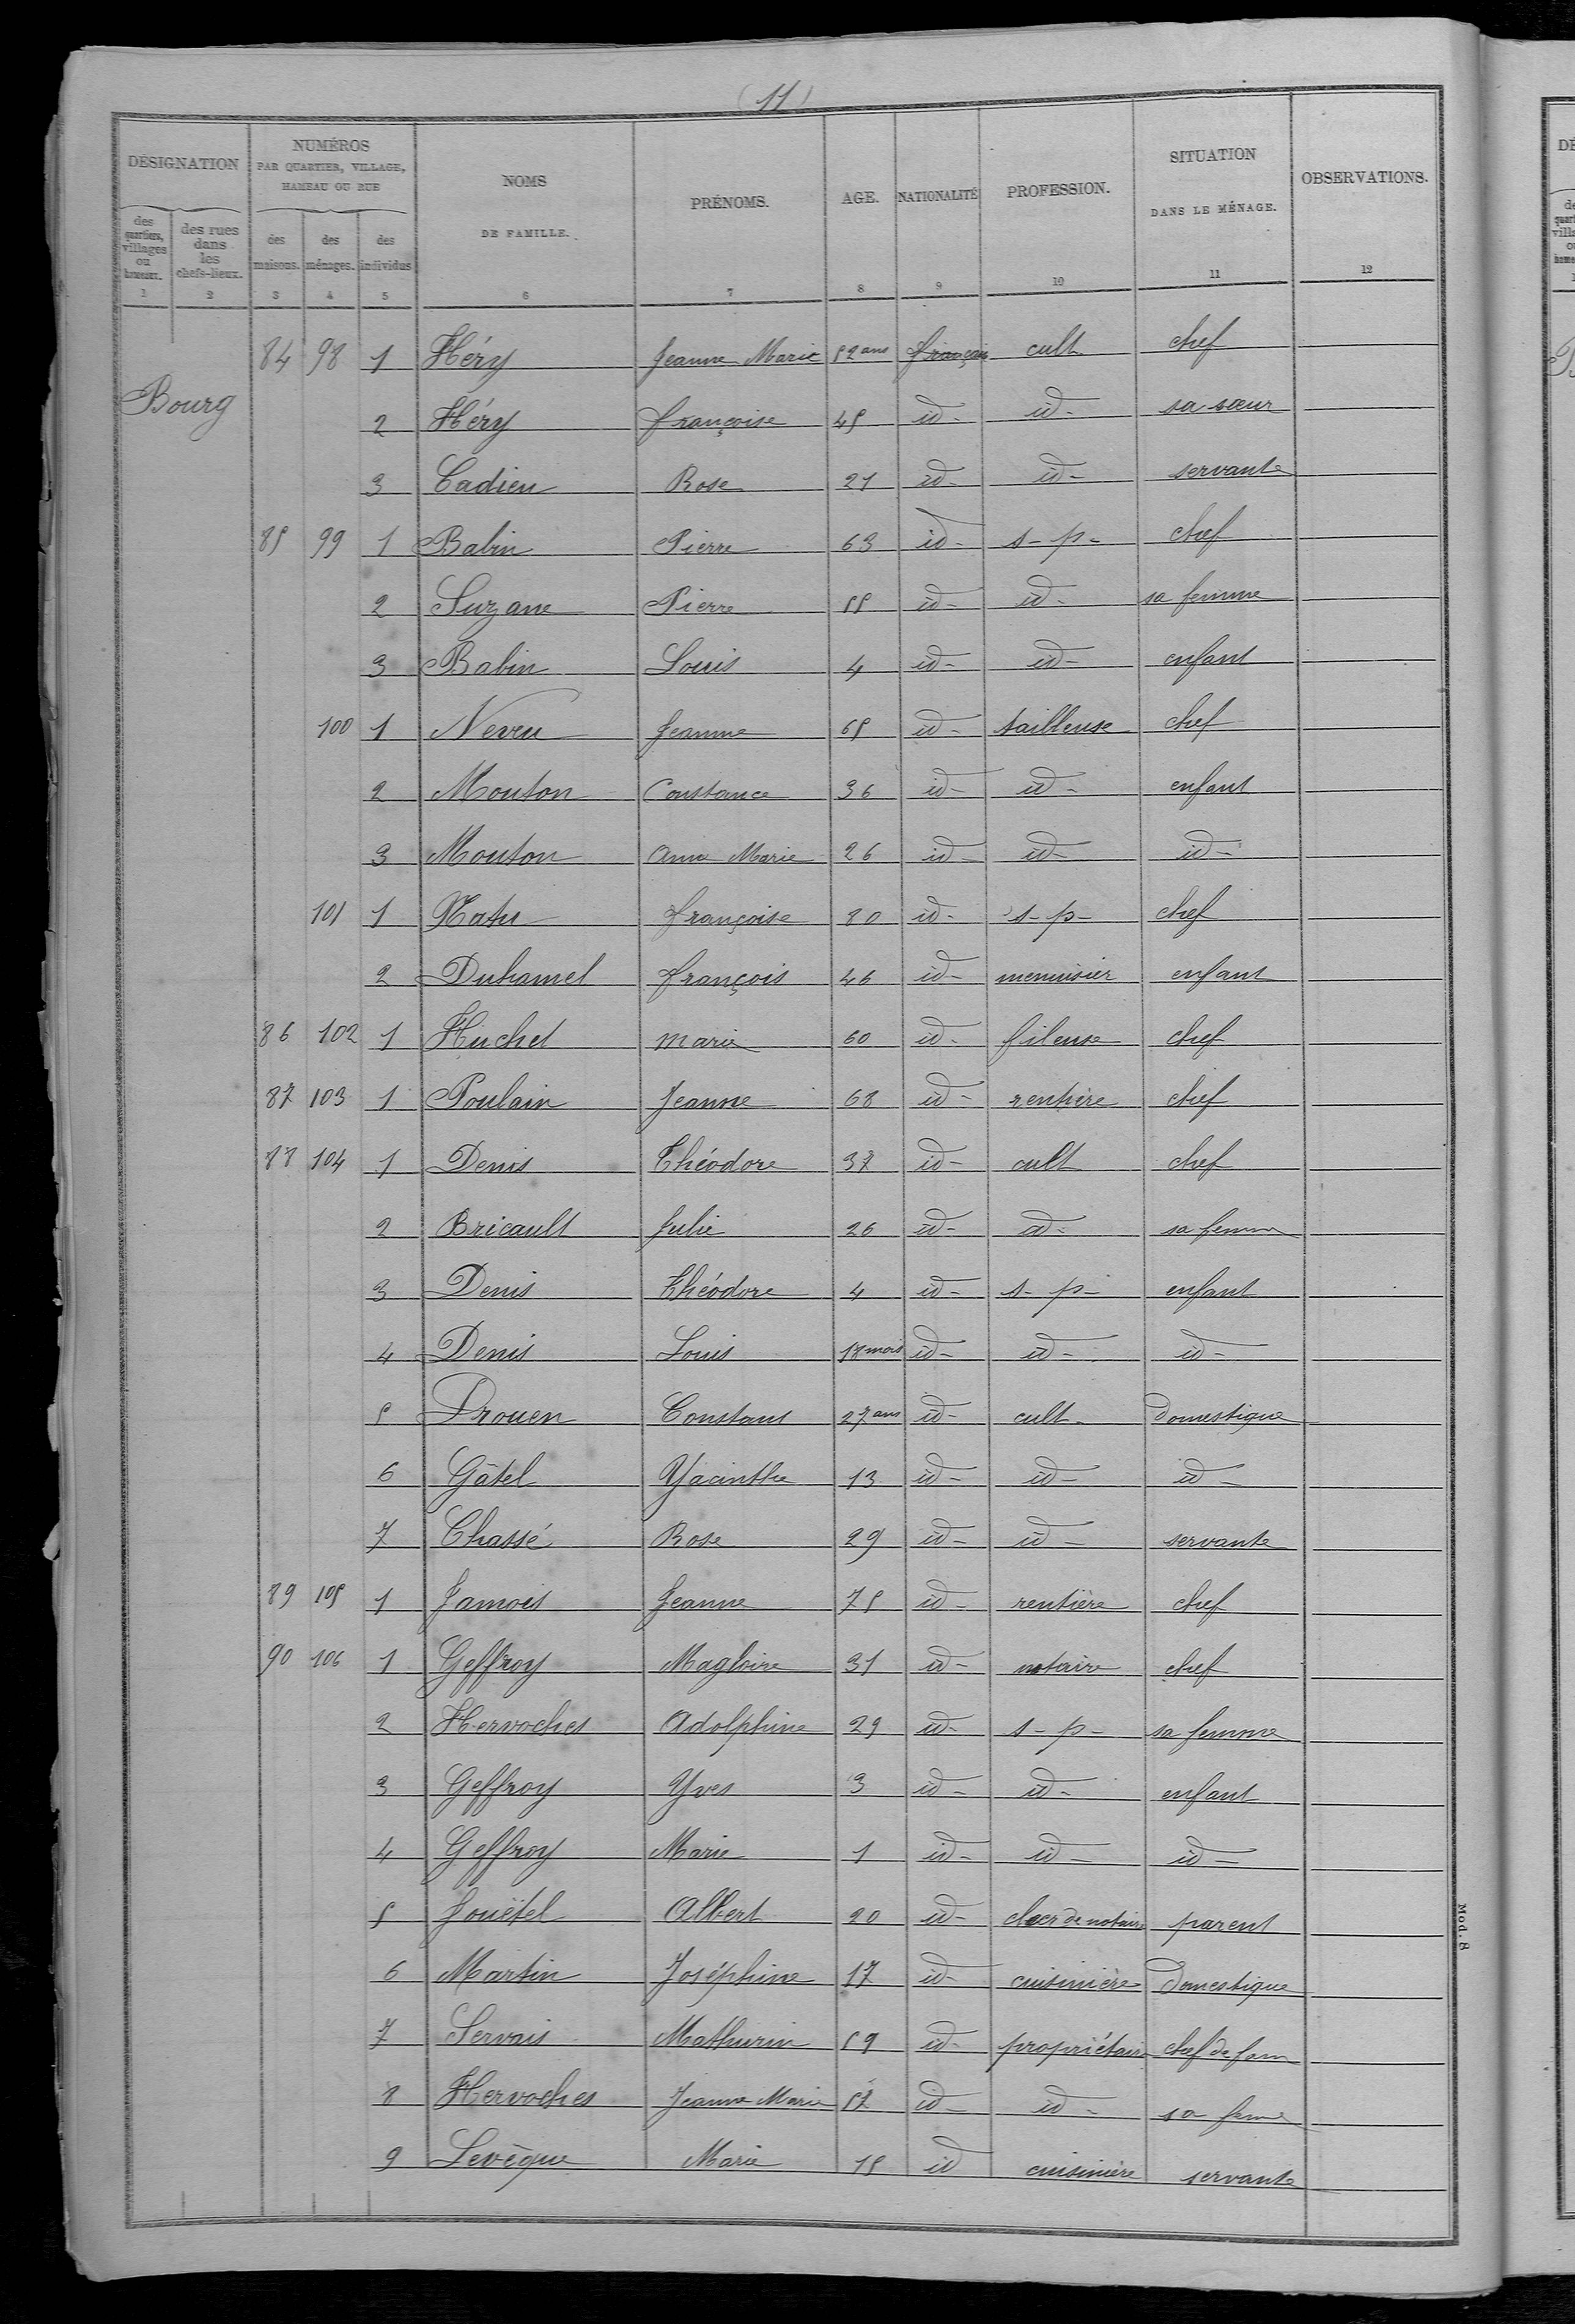 (11)
DÉSIGNATION NUMÉROS PAR QUARTIER, VILLAGE, HAMEAU OU RUE NOMS DE FAMILLE. PRÉNOMS. AGE. NATIONALITÉ PROFESSION. SITUATION DANS LE MÉNAGE. OBSERVATIONS.
des quartiers, villages ou hameaux. des rues dans les chefs-lieux. des maisons. des ménages. des individus
1 2 3 4 5 6 7 8 9 10 11 12
84 98 1 Héry Jeanne Marie 52 ans française cult chef
Bourg
2 Héry françoise 45 id- id- sa sœur
3 Cadieu Rose 21 id- id- servante
85 99 1 Babin Pierre 63 id- s-p- chef
2 Suzane Pierre 55 id- id- sa femme
3 Babin Louis 4 id- id- enfant
100 1 Neveu Jeanne 65 id- tailleuse chef
2 Mouton Constance 36 id- id- enfant
3 Mouton Anne Marie 26 id- id- id-
101 1 françoise 80 id- s-p- chef
2 Duhamel françois 46 id- menuisier enfant
86 102 1 Huchet marie 60 id- fileuse chef
87 103 1 Poulain Jeanne 68 id- rentière chef
88 104 1 Denis Théodore 37 id- cult chef
2 Bricault Julie 26 id- id- sa femme
3 Denis Théodore 4 id- s-p- enfant
4 Denis Louis 18 mois id- id- id-
5 Drouen Constant 27 ans id- cult- Domestique
6 Gâtel Yacinthe 13 id- id- id-
7 Chassé Rose 29 id- id- servante
89 105 1 Jamois Jeanne 75 id- rentière chef
90 106 1 Geffroy Magloire 31 id- notaire chef
2 Hervoches Adolphine 29 id- s-p- sa femme
3 Geffroy Yves 3 id- id- enfant
4 Geffroy Marie 1 id- id- id-
5 Jouëtel Albert 20 id- clerc de notaire parent
6 Martin Joséphine 17 id- cuisinière Domestique
7 Servais Mathurin 59 id- propriétaire chef de fam
8 Hervoches Jeanne Marie 57 id- id- sa femme
9 Levêque Marie 15 id cuisinière servante
Mod. 8